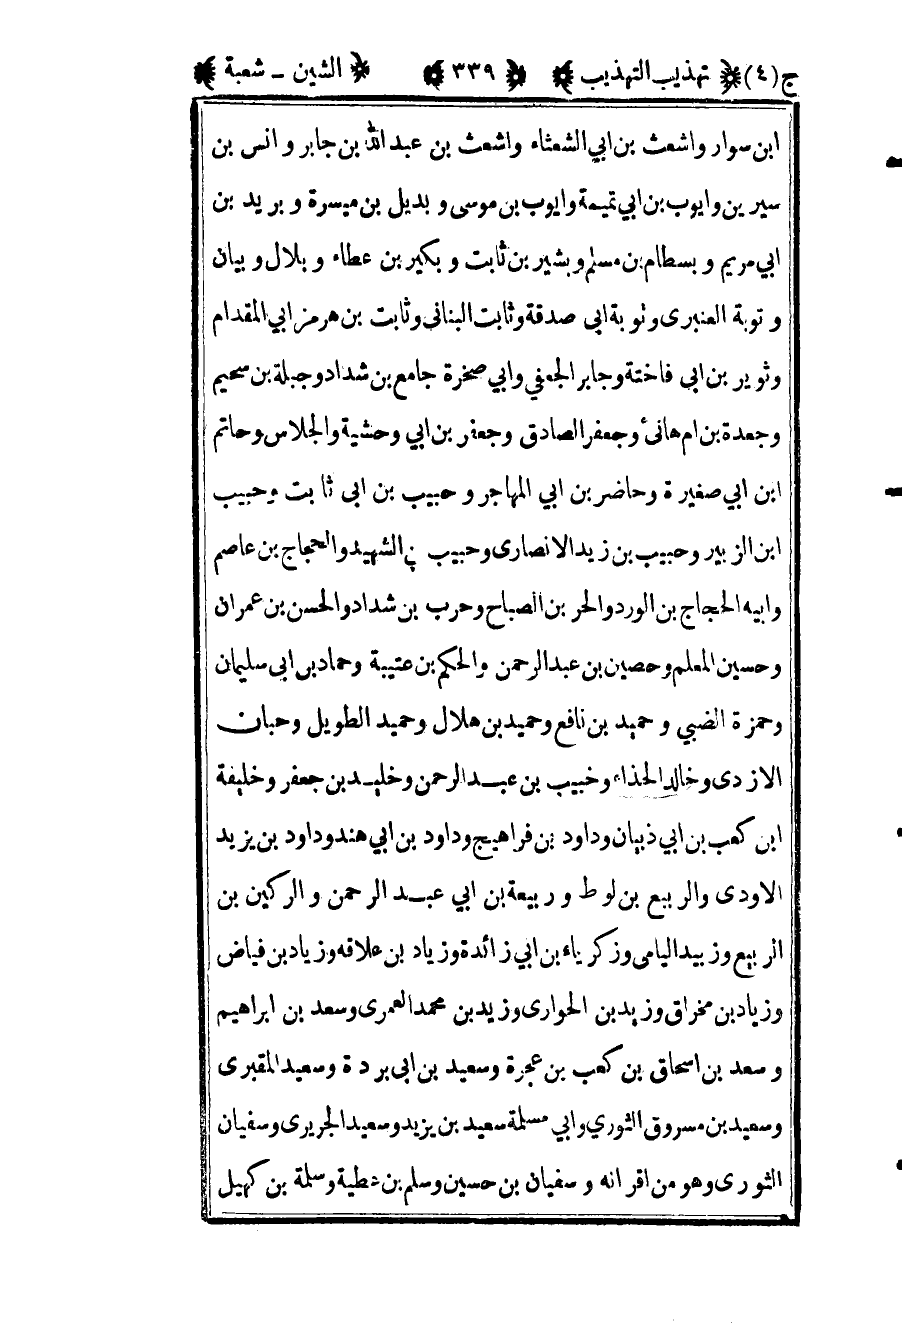 ج(٤) تهذيب التهذيب ٣٣٩ الشين - شعبة
ابن سوار واشعث بن ابي الشعثاء واشعث بن عبد الله بن جابر وانس بن
سيرين وايوب بن ابي تميمة وايوب بن موسى وبديل بن ميسرة وبريد بن
ابي مريم وبسطام بن مسلم وبشير بن ثابت وبكير بن عطاء وبلال وبيان
وتوبة العنبرى وثوبة ابى صدقة وثابت البنانى وثابت بن هرمز ابي المقدام
وثوير بن ابى فاختة وجابر الجعفي وابي صخرة جامع بن شداد وجبلة بن سحيم
وجعدة بن ام هانئ وجعفر الصادق وجعفر بن ابي وحشية والجلاس وحاتم
ابن ابي صغيرة وحاضر بن ابي المهاجر وحبيب بن ابى ثابت وحبيب
ابن الزبير وحبيب بن زيد الانصارى وحبيب بن الشهيد والحجاج بن عاصم
وابيه الحجاج بن الورد والحر بن الصباح وحرب بن شداد والحسن بن عمران
وحسين المعلم وحصين بن عبد الرحمن والحكم بن عتيبة وحماد بن ابى سليمان
وحمزة الضبي وحميد بن نافع وحميد بن هلال وحميد الطويل وحبان
الازدى وخالد الحذاء وخبيب بن عبد الرحمن وخليد بن جعفر وخليفة
ابن كعب بن ابي ذبيان وداود بن فراهيج وداود بن ابي هند وداود بن يزيد
الاودى والربيع بن لوط وربيعة بن ابي عبد الرحمن والركين بن
الربيع وزبيد اليامى وزكرياء بن ابي زائدة وزياد بن علاقه وزياد بن فياض
وزياد بن مخراق وزيد بن الحوارى وزيد بن محمد العمرى وسعد بن ابراهيم
وسعد بن اسحاق بن كعب بن عجرة وسعيد بن ابى بردة وسعيد المقبرى
وسعيد بن مسروق الثوري وابي مسلمة سعيد بن يزيد وسعيد الجريرى وسفيان
الثورى وهو من اقرانه وسفيان بن حسين وسلم بن عطية وسلمة بن كهيل